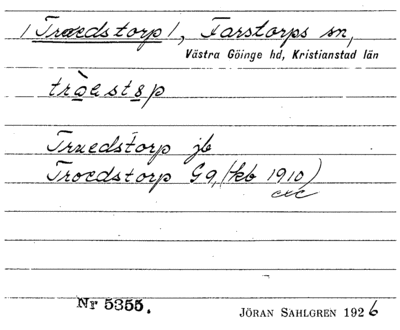 /Troedstorp/, Farstorps sn,
Västra Göinge hd, Kristianstad län
Truedstorp jb
Troedstorp G9, (kb 1910)
Nr 5355.
JÖRAN SAHLGREN 1926